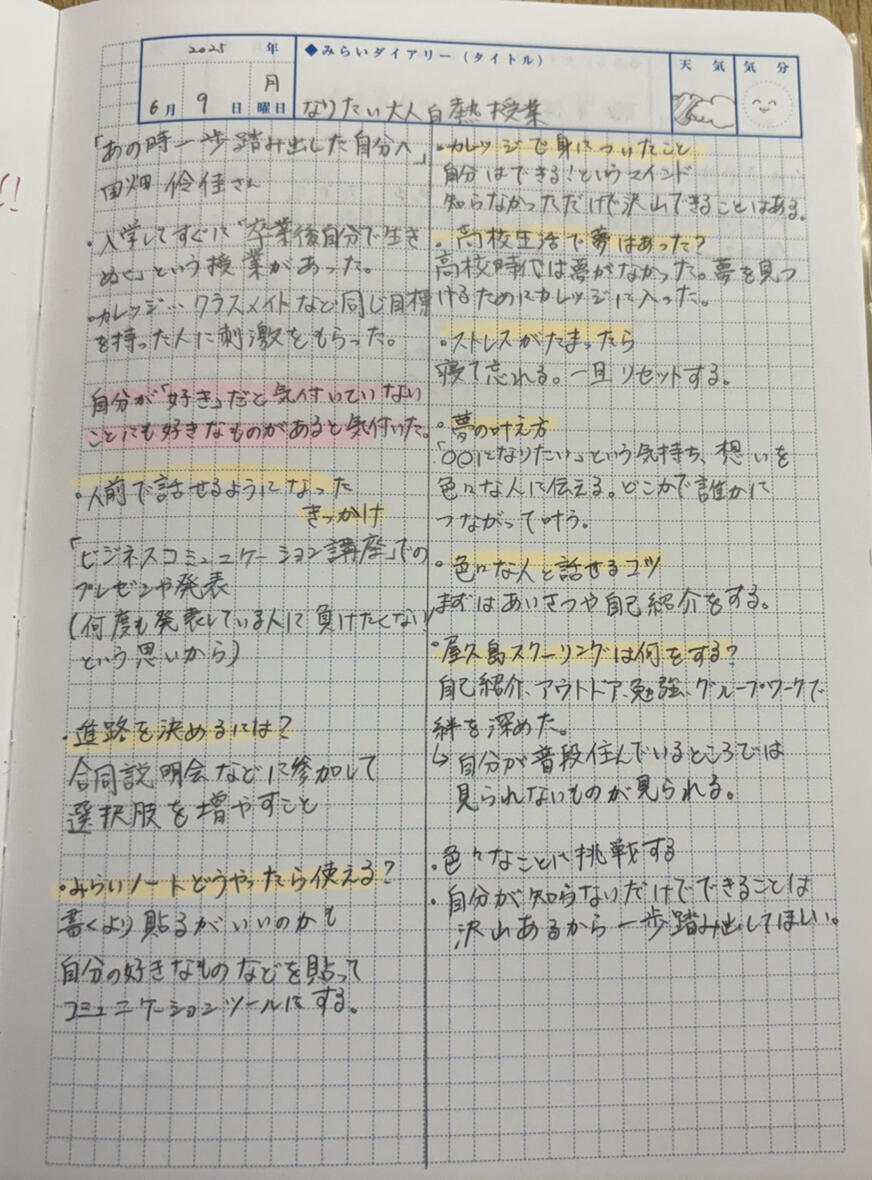 2025 年
6月 9 日 月曜日
◆みらいダイアリー(タイトル)
なりたい大人白熱授業
天気
気分
「あの時一歩踏み出した自分へ」
田畑 伶佳さん
・入学してすぐに「卒業後自分で生き
ぬく」という授業があった。
・カレッジ…クラスメイトなど同じ目標
を持った人に刺激をもらった。
自分が「好き」だと気付いていない
ことにも好きなものがあると気付いた。
・人前で話せるようになった
きっかけ
「ビジネスコミュニケーション講座」での
プレゼンや発表
(何度も発表している人に負けたくない
という思いから)
・進路を決めるには?
合同説明会などに参加して
選択肢を増やすこと
・みらいノートどうやったら使える?
書くより貼るがいいのかも
自分の好きなものなどを貼って
コミュニケーションツールにする。
・カレッジで身についたこと
自分はできる!というマインド
知らなかっただけで沢山できることはある。
・高校生活で夢はあった?
高校時代は夢がなかった。夢を見つ
けるためにカレッジに入った。
・ストレスがたまったら
寝て忘れる。一旦リセットする。
・夢の叶え方
「○○になりたい」という気持ち、想いを
色々な人に伝える。どこかで誰かに
つながって叶う。
・色々な人と話せるコツ
まずはあいさつや自己紹介をする。
・屋久島スクーリングは何をする?
自己紹介、アウトドア、勉強、グループワークで
絆を深めた。
↳自分が普段住んでいるところでは
見られないものが見られる。
・色々なことに挑戦する
・自分が知らないだけでできることは
沢山あるから一歩踏み出してほしい。